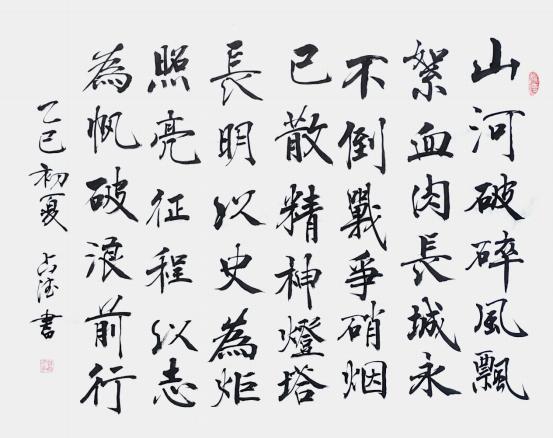 山河破碎風飄
絮血肉長城永
不倒戰爭硝烟
已散精神燈塔
長明以史為炬
照亮征程以志
為帆破浪前行
乙巳初夏 占法書